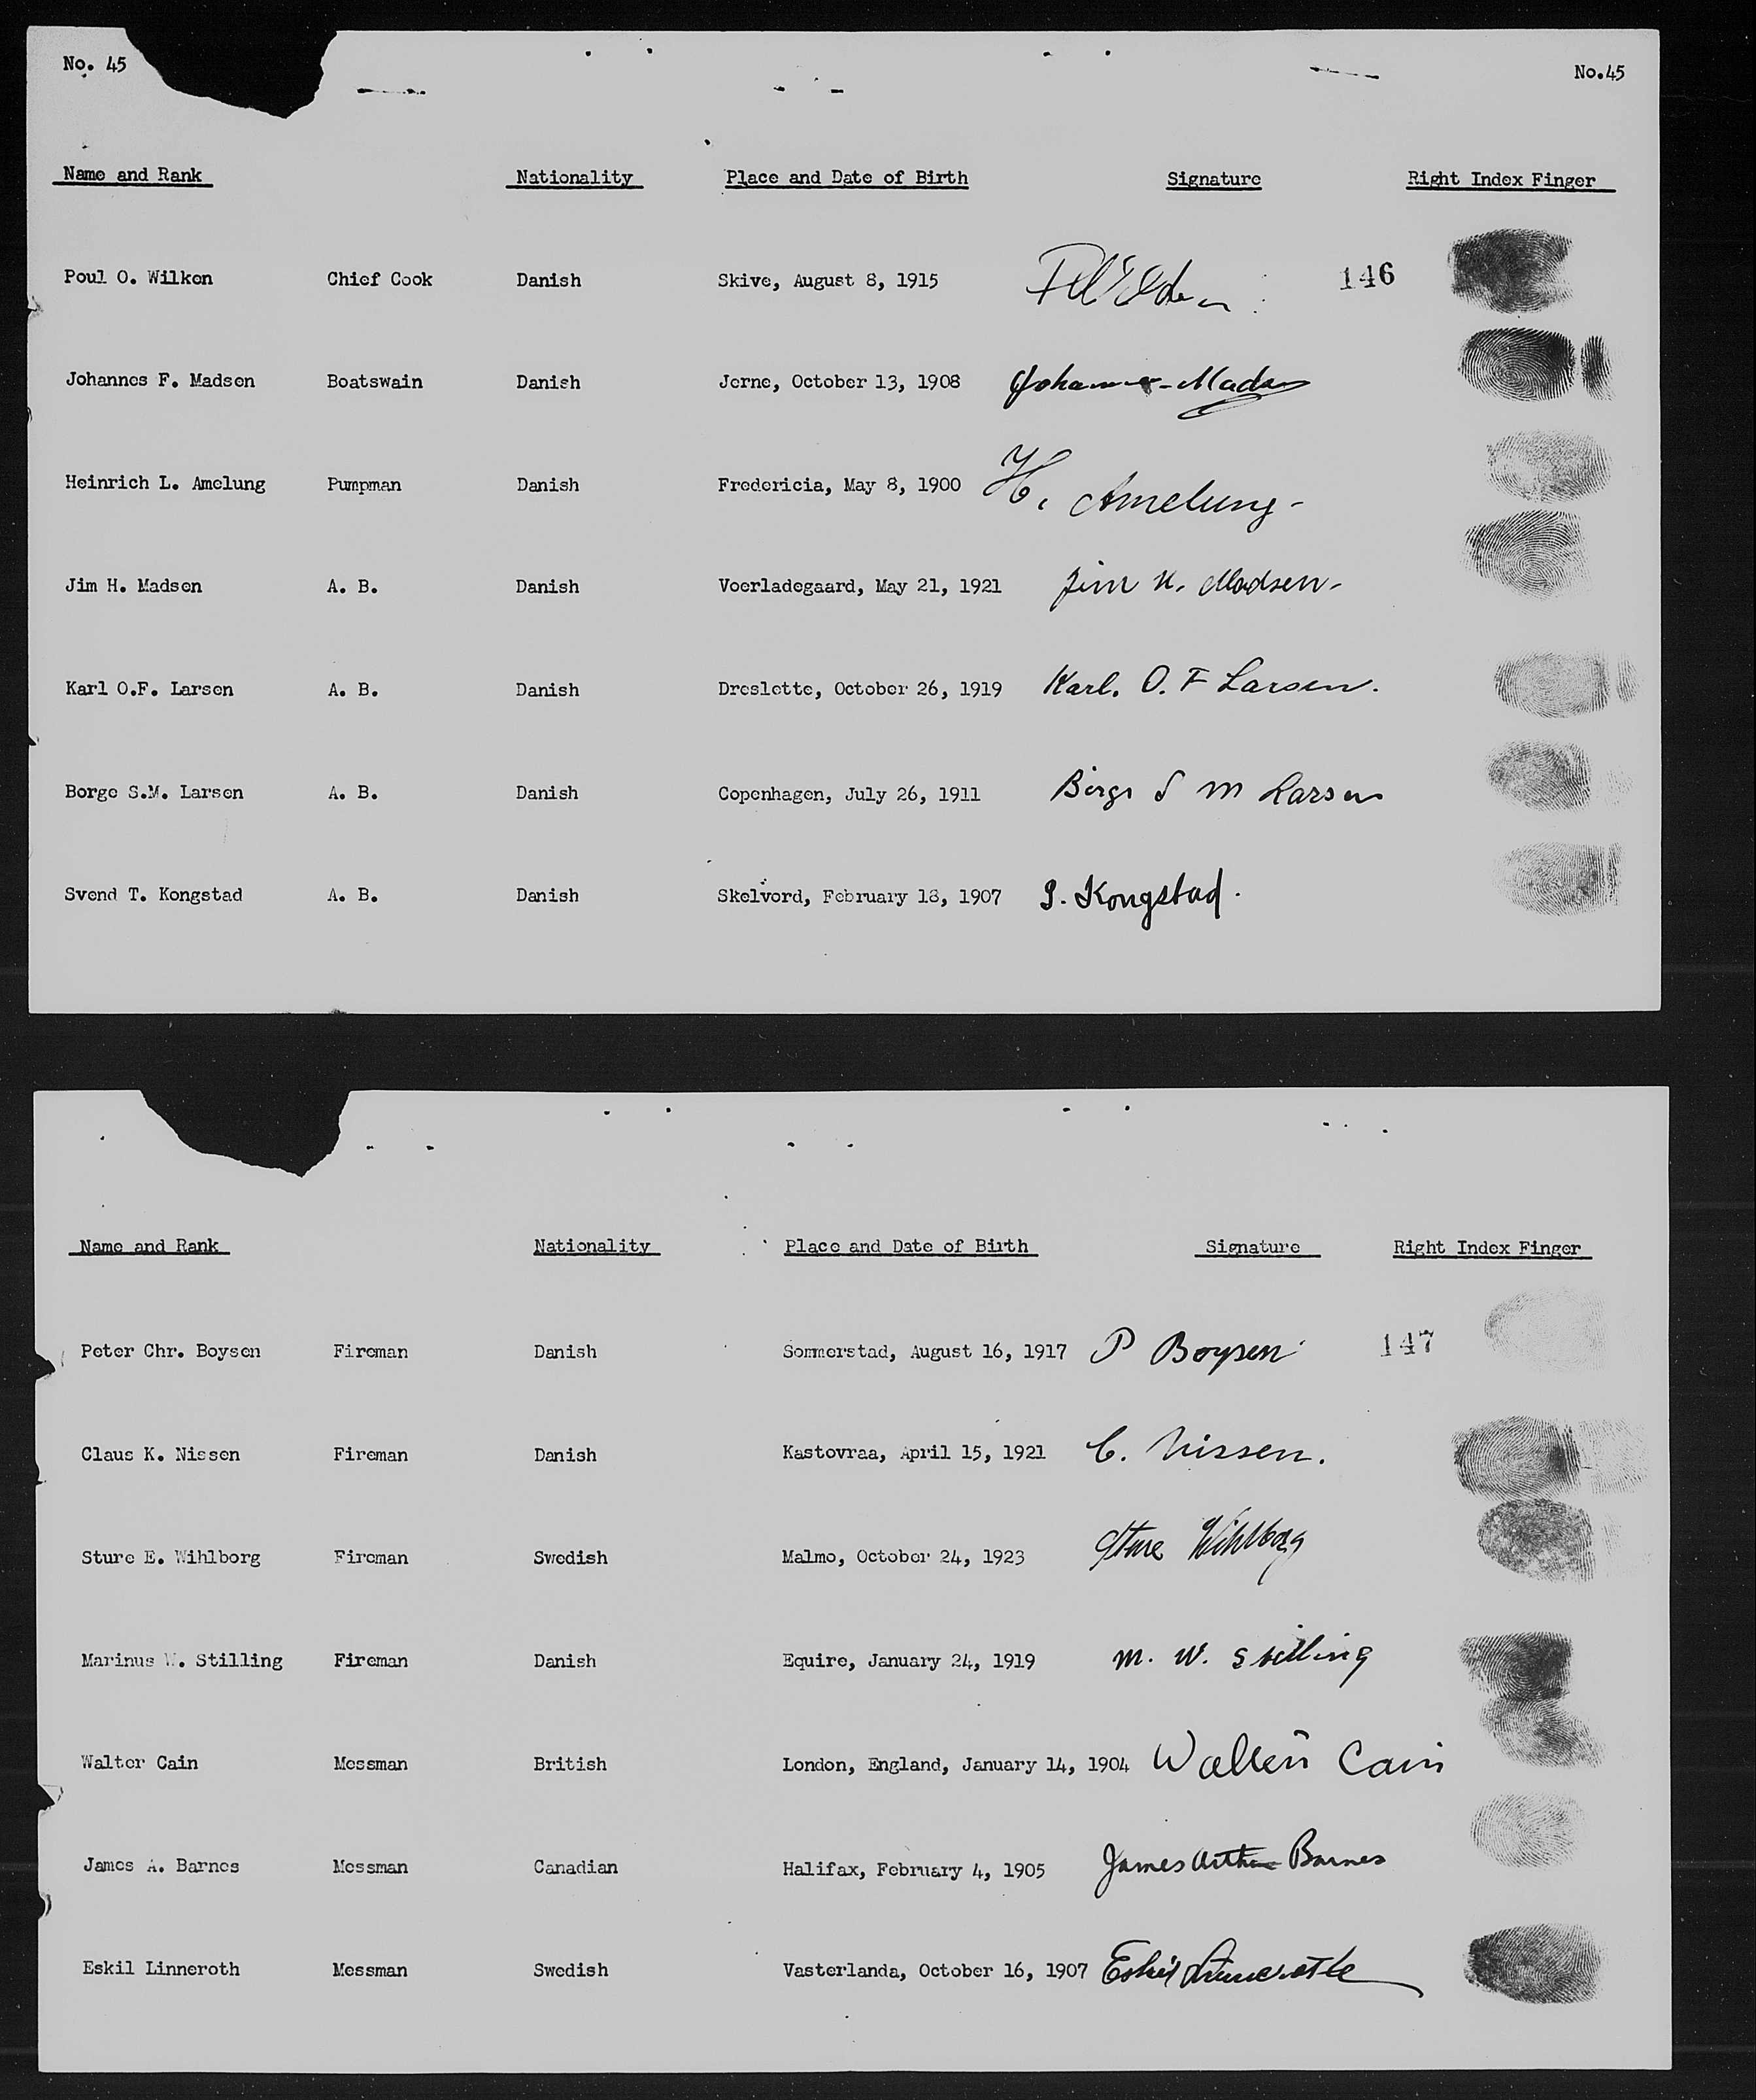 No. 45 No.45
Name and Rank Nationality Place and Date of Birth Signature Right Index Finger
Poul O. Wilken Chief Cook Danish Skive, August 8, 1915 146
Johannes F. Madsen Boatswain Danish Jerne, October 13, 1908 Johannes Madsen
Heinrich L. Amelung Pumpman Danish Fredericia, May 8, 1900 H. Amelung-
Jim H. Madsen A. B. Danish Voerladegaard, May 21, 1921 Jim H. Madsen-
Karl O.F. Larsen A. B. Danish Dreslette, October 26, 1919 Karl. O. F Larsen.
Borge S.M. Larsen A. B. Danish Copenhagen, July 26, 1911 Börge S M Larsen
Svend T. Kongstad A. B. Danish Skelvord, February 18, 1907 S. Kongstad.
Name and Rank Nationality Place and Date of Birth Signature Right Index Finger
Peter Chr. Boysen Fireman Danish Sommerstad, August 16, 1917 P Boysen 147
Claus K. Nissen Fireman Danish Kastovraa, April 15, 1921 C. Nissen.
Sture E. Wihlborg Fireman Swedish Malmo, October 24, 1923 Sture Wihlborg
Marinus W. Stilling Fireman Danish Equire, January 24, 1919 M. W. Stilling
Walter Cain Messman British London, England, January 14, 1904 Walter Cain
James A. Barnes Messman Canadian Halifax, February 4, 1905 James Arthur Barnes
Eskil Linneroth Messman Swedish Vasterlanda, October 16, 1907 Eskil Linneroth